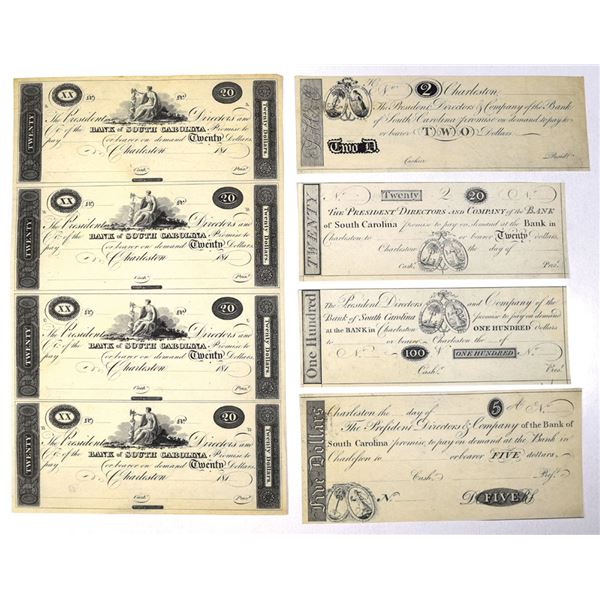 XX No No 20
TWENTY
Twenty Dollars.
The President Directors and
Co. of the BANK OF SOUTH CAROLINA, Promise to
pay or bearer on demand Twenty Dollars.
No. Charleston 181
Cash. Pres.
XX No No 20
TWENTY
Twenty Dollars.
The President Directors and
Co. of the BANK OF SOUTH CAROLINA, Promise to
pay or bearer on demand Twenty Dollars.
No. Charleston 181
Cash. Pres.
XX No No 20
TWENTY
Twenty Dollars.
The President Directors and
Co. of the BANK OF SOUTH CAROLINA, Promise to
pay or bearer on demand Twenty Dollars.
No. Charleston 181
Cash. Pres.
XX No No 20
TWENTY
Twenty Dollars.
The President Directors and
Co. of the BANK OF SOUTH CAROLINA, Promise to
pay or bearer on demand Twenty Dollars.
No. Charleston 181
Cash. Pres.
No. 2 Charleston,
The President, Directors & Company of the Bank
of South Carolina promise on demand to pay to
or bearer TWO Dollars
Two D.
Cashier Presidt.
TWENTY
No. Twenty 2 20 No.
THE PRESIDENT DIRECTORS AND COMPANY of the BANK
of South Carolina promise to pay on demand at the Bank in
Charleston to or bearer Twenty dollars.
Charleston the day of
Cash. Pres.
One Hundred
The President Directors and Company of the
Bank of South Carolina promise to pay on demand
at the BANK in Charleston ONE HUNDRED dollars
to or bearer Charleston the of
No. 100 ONE HUNDRED No.
Cash. Pres.
Five Dollars
Charleston the day of 5 A No.
The Prefident Directors & Company of the Bank of
South Carolina promise to pay on demand at the Bank in
Charlefton to or bearer FIVE dollars,
Cash. Pref.
No. D FIVE RS